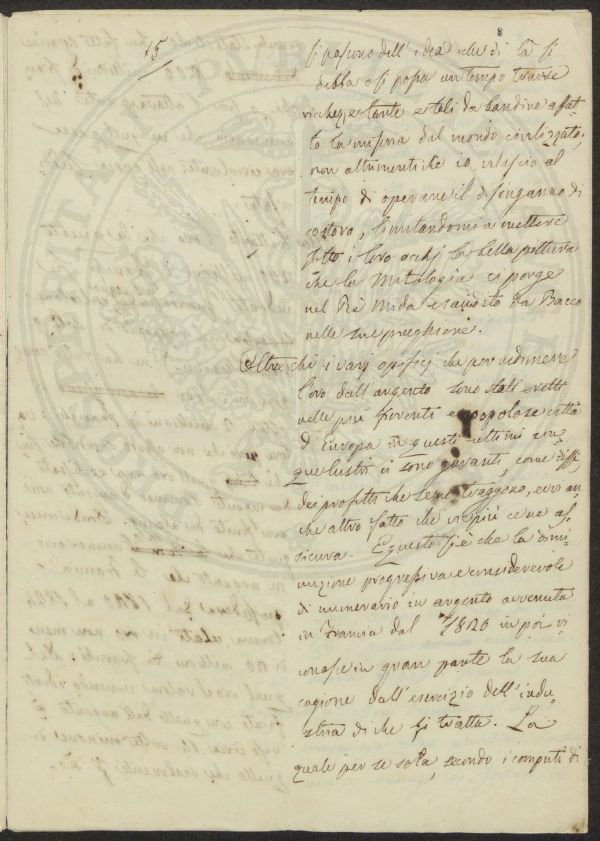 15
8
si pascono dell'idea che di là si
debba o si possa un tempo trarre
ricchezze tante e tali da bandire affat-
to la miseria dal mondo civilizzato;
non altrimenti che io rilascio al
tempo di operare il disinganno di
costoro, limitandomi a mettere
sotto i loro occhj la bella pittura
che la Mitologia ci porge
nel Rè Mida esaudito da Bacco
nelle sue preghiere.
Oltre chè i varj opificj che per redimere
l'oro dall'argento sono stati eretti
nelle più fiorenti e popolose città
d'Europa in questi ultimi cin-
que lustri ci sono garanti, come dissi,
dei profitti che se ne traggono, evvi an-
che altro fatto che vie più ce ne as-
sicura. E questo si è che la dimi-
nuzione progressiva e considerevole
di numerario in argento avvenuta
in Francia dal 1820 in poi ri-
conosce in gran parte la sua
cagione dall'esercizio dell'indu-
stria di che si tratta. La
quale per se sola, secondo i computi di